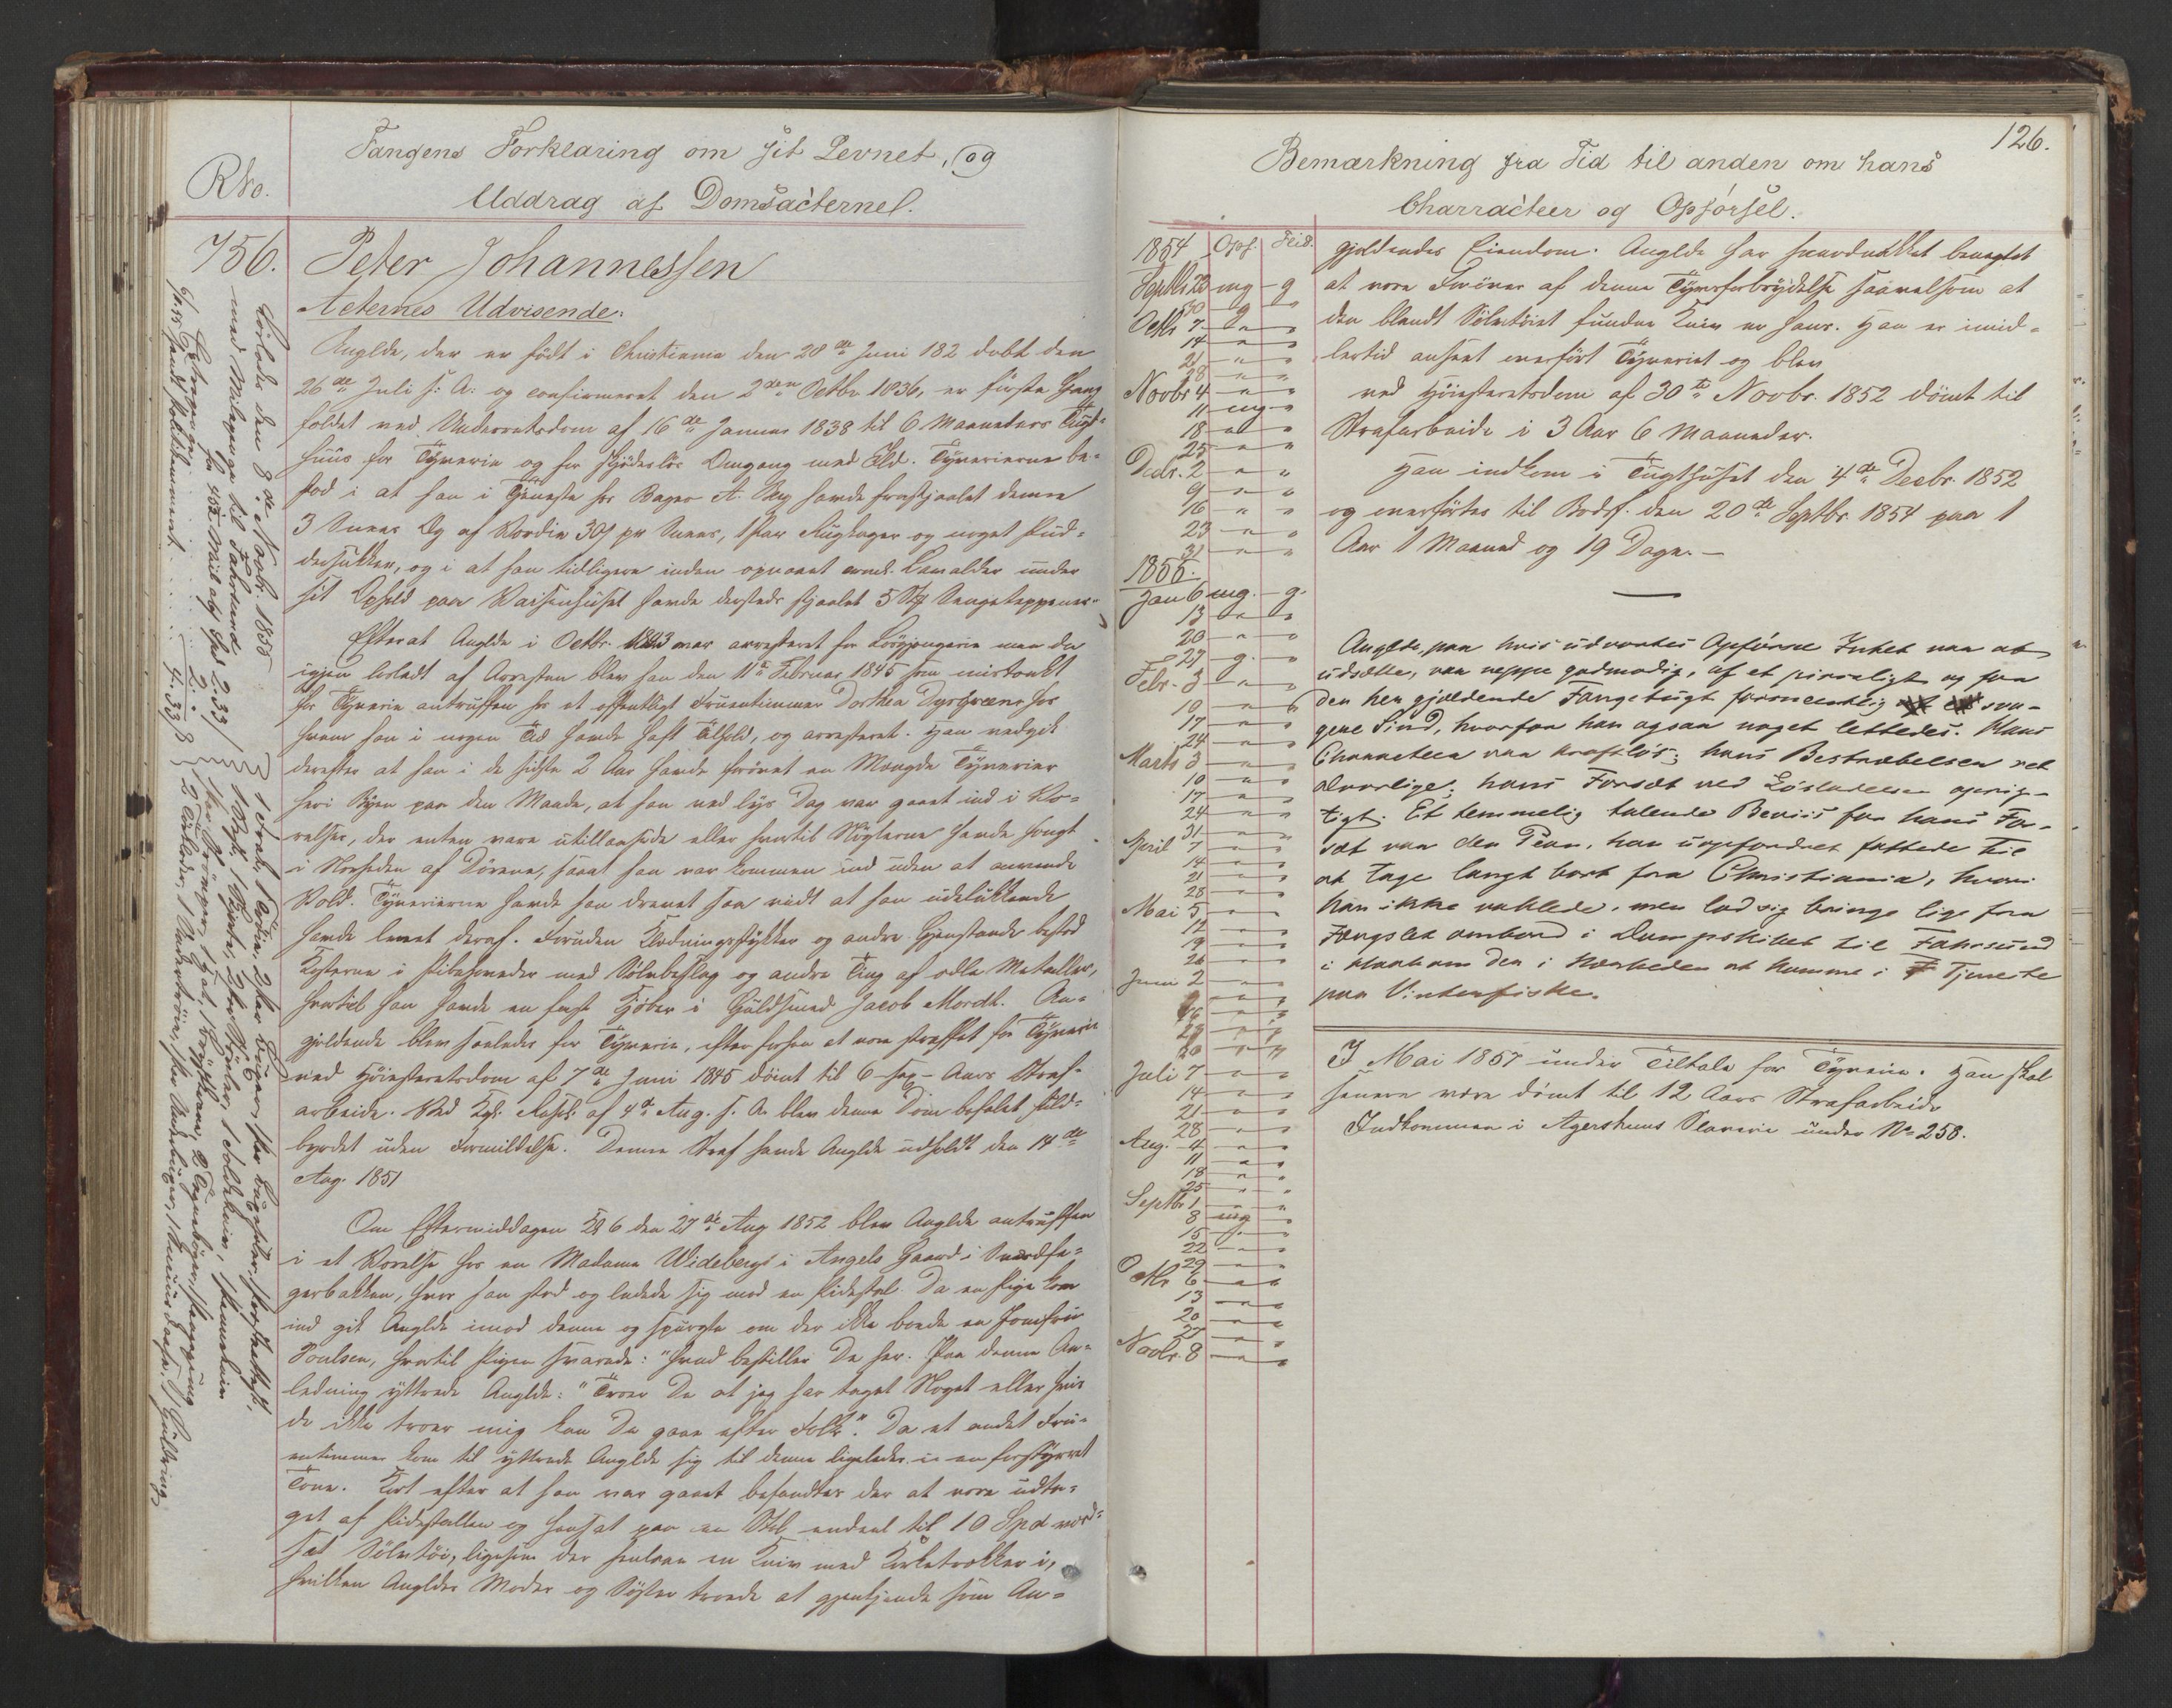 Fangens Forklaring om sit Levnet, og
Uddrag af Domsacterne.
RNo.
756. Peter Johannessen
Acternes Udvisende:
Anglde, der er født i Christiania den 20de Juni 182 døbt den
26de Juli s: A: og confirmeret den 2den Octbr 1836, er første Gang
foldet ved Underretsdom af 16de Januar 1838 til 6 Maaneders Tugt-
huus for Tyverie og for skjødesløs Omgang med Ild. Tyverierne be-
stod i at han i Tjeneste hos Bager A. havde frastjaalet denne
3 Snees Æg af Værdie 30 s pr Snees, 1 Par og noget
og i at han tidligere inden opnaaet Lavalder under
sit Ophold paa Waisenhuset havde dersteds stjaalet 5 Stk Sengeteppener.
Efterat Anglde i Octbr. 1843 var arresteret for Løsgjængerie men da
igjen losladt af Arresten blev han den 11te Februar 1845 som mistænkt
for Tyverie antruffen hos et offentligt Fruentimmer Dorthea hos
hvem han i nogen Tid havde havt Tilhold, og arresteret. Han vedgik
derefter at han i de sidste 2 Aar havde forøvet en Mængde Tyverier
her i Byen paa den Maade, at han ved lys Dag var gaaet ind i Væ-
relser, der enten vare utillaasede eller hvortil Nøglerne havde hængt
i Nærheden af Dørene, saaat han var kommen ind uden at anvende
Vold. Tyverierne havde han drevet saa vidt at han udelukkende
havde levet deraf. Foruden Klædningsstykker og andre Gjenstande bestod
Kosterne i Pibehoveder med Sølvbeslag og andre Ting af ædle Metaller,
hvortil han havde en fast Kjøber i Guldsmed Jacob Mordt. An-
gjeldende blev saaledes for Tyverie, efter forhen at være straffet for Tyverie
ved Høiesteretsdom af 7de Juni 1845 dømt til 6 sex Aars Straf-
arbeide. Ved Kgl: Resol: af 4de Aug. s. A. blev denne Dom befalet fuld-
byrdet uden Formildelse. Denne Straf havde Anglde udholdt den 14de
Aug. 1851
Om Eftermiddagen Kl 6 den 27de Aug 1852 blev Anglde antruffen
i et Værelse hos en Madame Wideberg i Angels Gaard i
gerbakken, hvor han stod og ludede sig mod en Pidestal. Da en Pige kom
ind gik Anglde imod denne og spurgte om der ikke boede en Jomfru
Poulsen, hvortil Pigen svarede: "hvad bestiller De her. Paa denne An-
ledning yttrede Anglde: "Troer De at jeg har taget Noget eller hvis
de ikke troer mig kan De gaae efter Folk." Da et andet Fru-
entimmer kom til yttrede Anglde sig til denne ligeledes i en forstyrret
Tone. Kort efter at han var gaaet befandtes der at være udta-
get af Pidestallen og hensat paa en Stol endeel til 10 Spd værd-
sat Sølvtøi, ligesom der henlaae en Kniv med Korketrækker i,
hvilken Angldes Moder og Søster troede at gjenkjende som An-
Løsladt den 8de Novbr. 1855
med Metegenge til Farsund
for 45½ Miil
2:33
Extrapenge 2 "
4:33 s
1 Frak, 1 Trøie, 2 Par Buxer, 1 Par
1 Vest, 1 Skjorte, 2 Par Strømper, 1 Foldekniv,
1 Par Strømper, 1 Hat,
126.
Bemærkning fra Tid til anden om hans
Charracteer og Opførsel.
1854 Opf. Flid.
Septbr 23 mg - g
30 g
Octbr 7 - " - "
14 - " - "
21 - " - "
28 - " - "
Novbr 4 - " - "
11 mg - "
18 - " - "
25 - " - "
Decbr. 2 - " - "
9 - " - "
16 - " - "
23 - " - "
31 - " - "
1855.
Jan 6 mg. - g.
13 - " - "
20 - " - "
27 - g. - "
Febr. 3 - " - "
10 - " - "
17 - " - "
24 - " - "
Marts 3 - " - "
10 - " - "
17 - " - "
24 - " - "
31 - " - "
April 7 - " - "
14 - " - "
21 - " - "
28 - " - "
Mai 5 - " - "
12 - " - "
19 - " - "
26 - " - "
Juni 2 - " - "
9 - " - "
16 - " - "
23 - " - "
30 - " - "
Juli 7 - " - "
14 - " - "
21 - " - "
28 - " - "
Aug. 4 - " - "
11 - " - "
18 - " - "
25 - " - "
Septbr 1 - " - "
8 - mg - "
15 - g. - "
22 - " - "
29 - " - "
Octbr 6 - " - "
13 - " - "
20 - " - "
27 - " - "
Novbr. 8 - " - "
gjeldendes Eiendom. Anglde har haardnakket benægtet
at være Forøver af denne Tyvsforbrydelse saavelsom at
den blandt Sølvtøiet fundne Kniv er hans. Han er imid-
lertid anseet overført Tyveriet og blev
ved Høiesteretsdom af 30te Novbr. 1852 dømt til
Strafarbeide i 3 Aar 6 Maaneder.
Han indkom i Tugthuset den 4de Decbr. 1852
og overførtes til Bodsf. den 20de Septbr. 1854 paa 1
Aar 1 Maaned og 19 Dage. —
Anglde, paa hvis udvortes Opførsel Intet var at
udsætte, var neppe godmodig, af et pirreligt og for
den her gjældende Fangetugt formeentlig sva-
gere Sind, hvorfor han ogsaa noget lettedes. Hans
Charracteer var kraftløs; hans Bestræbelser ret
alvorlige; hans Forsæt ved Løsladelsen oprig-
tigt. Et temmelig talende Beviis for hans For-
sæt var den Plan, han uopfordret fattede til
at tage langt bort fra Christiania, hvori
han ikke vaklede, men lod sig bringe lige fra
Fængslet ombord i Dampskibet til Fahrsund
i Haab om der i Nærheden at komme i Tjeneste
paa Vinterfiske.
I Mai 1857 under Tiltale for Tyverie. Han skal
senere være dømt til 12 Aars Strafarbeide
Indkommen i Agershuus Slaverie under No 258.